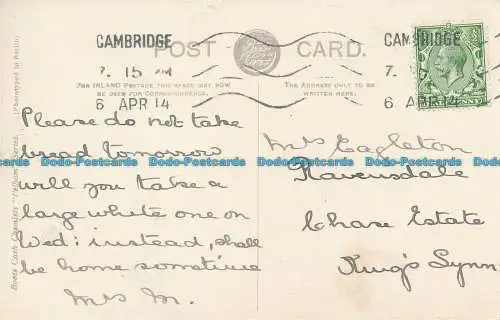 CAMBRIDGE
7. 15 PM
6 APR 14
POST CARD.
CAMBRIDGE
7.
6 APR 14
FOR INLAND POSTAGE THIS SPACE MAY NOW
BE USED FOR CORRESPONDENCE.
THE ADDRESS ONLY TO BE
WRITTEN HERE.
Please do not take
bread tomorrow
will you take a
large white one on
Wed: instead, shall
be home sometime
Mrs M.
Mrs Eagleton
Ravensdale
Chase Estate
King's Lynn
Dodo-Postcards Dodo-Postcards Dodo-Postcards Dodo-Postcards Dodo-Postcards